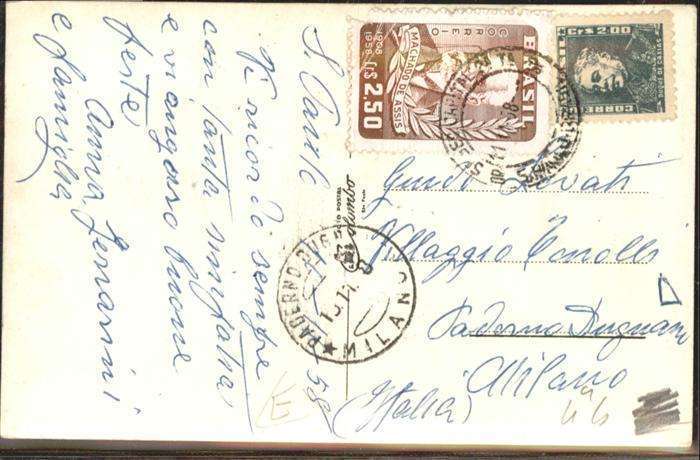 S. Paulo
Vi ricordo sempre
con tanta simpatia
e vi auguro buone
feste
Anna Ferrarini
e famiglia
58
BRASIL
CORREIO
MACHADO DE ASSIS
1908 1958
Cr$ 2.50
Cr$ 2.00
CORREIO
Guido Lovati
Villaggio
Paderno Dugnano
Milano
(Italia)
PADERNO DUGNANO
MILANO